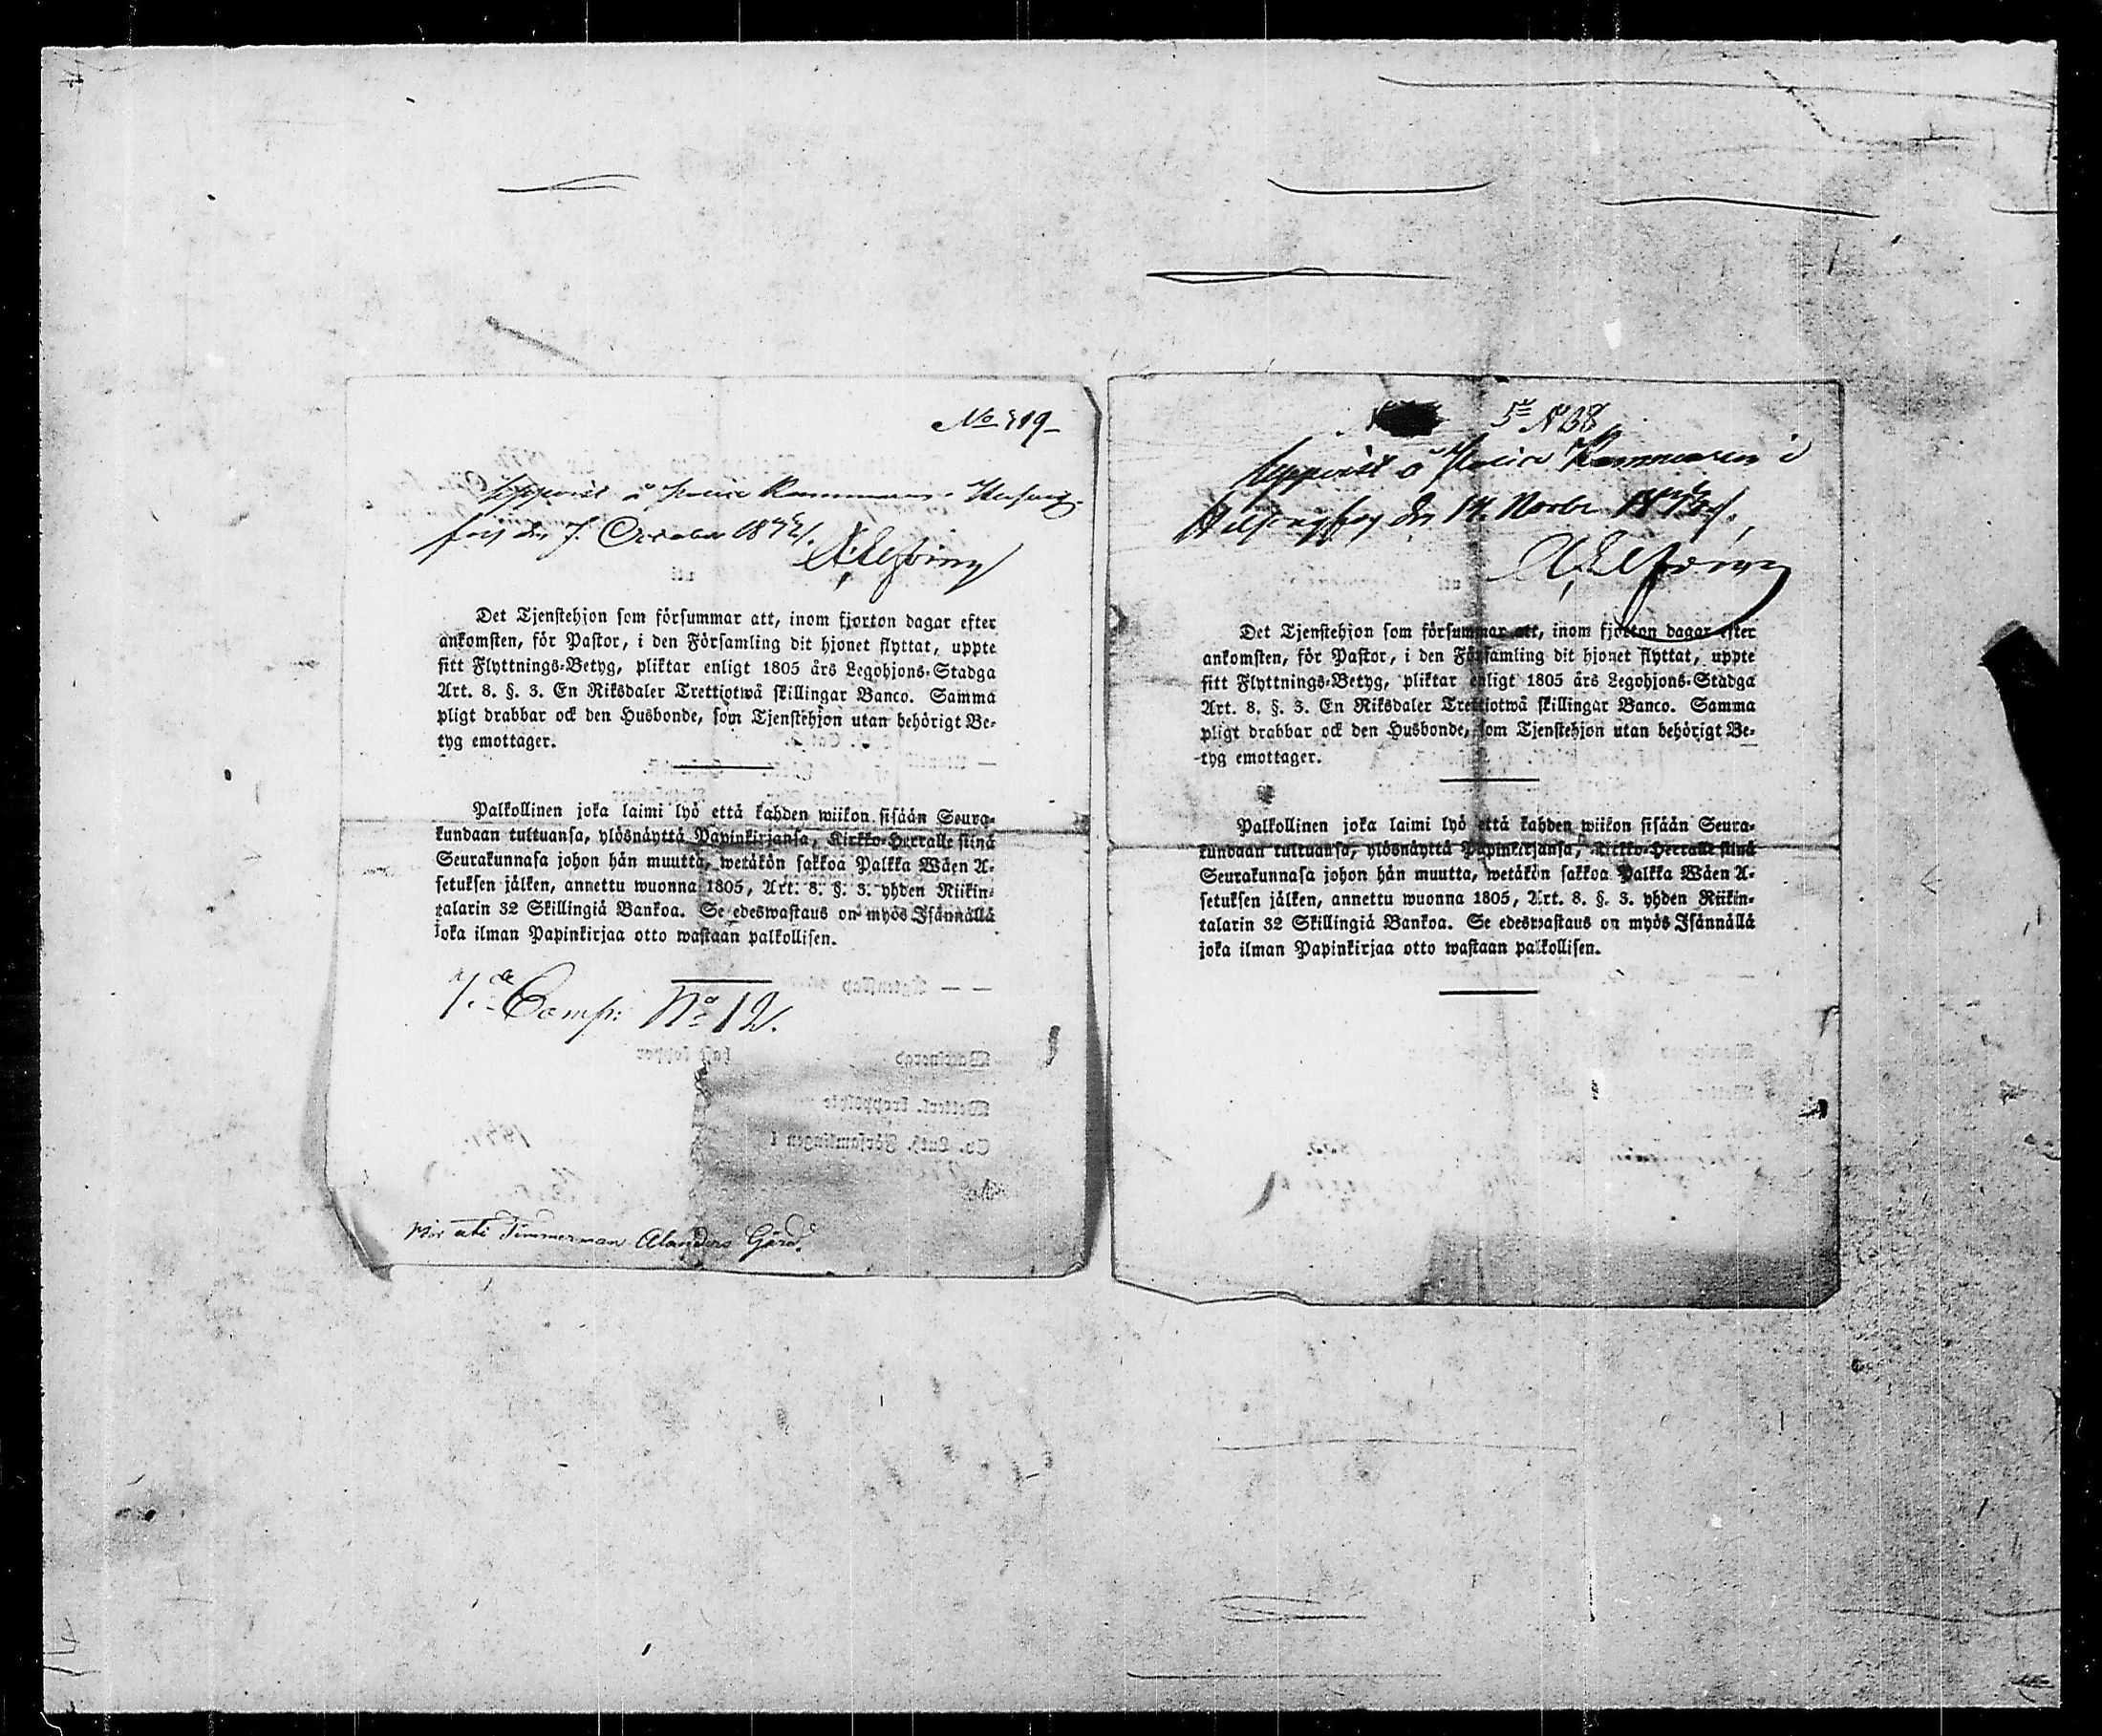 No 319
Uppvist å Police Kammaren i Helsing-
fors den 7. October 1842.
Det Tjenstehjon som försummar att, inom fjorton dagar efter
ankomsten, för Pastor, i den Församling dit hjonet flyttat, uppte
sitt Flyttnings-Betyg, pliktar enligt 1805 års Legohjons-Stadga
Art. 8. §. 3. En Riksdaler Trettiotwå skillingar Banco. Samma
pligt drabbar ock den Husbonde, som Tjenstehjon utan behörigt Be-
tyg emottager.
Palkollinen joka laimi lyö että kahden wiikon sisään Seura-
kundaan tultuansa, ylösnäyttä Papinkirjansa, Kirkko-Herralle siinä
Seurakunnasa johon hän muutta, wetäkön sakkoa Palkka Wäen A-
setuksen jälken, annettu wuonna 1805, Art. 8. §. 3. yhden Riikin-
talarin 32 Skillingiä Bankoa. Se edeswastaus on myös Isännällä
joka ilman Papinkirjaa otto wastaan palkollisen.
Comp: No 12.
Bor uti Timmerman Alanders Gård.
5te No 38
Uppvist å Police Kammaren i
Helsingfors den 14. Novbr
Det Tjenstehjon som försummar att, inom fjorton dagar efter
ankomsten, för Pastor, i den Församling dit hjonet flyttat, uppte
sitt Flyttnings-Betyg, pliktar enligt 1805 års Legohjons-Stadga
Art. 8. §. 3. En Riksdaler Trettiotwå skillingar Banco. Samma
pligt drabbar ock den Husbonde, som Tjenstehjon utan behörigt Be-
tyg emottager.
Palkollinen joka laimi lyö että kahden wiikon sisään Seura-
kundaan tultuansa, ylösnäyttä Papinkirjansa, Kirkko-Herralle siinä
Seurakunnasa johon hän muutta, wetäkön sakkoa Palkka Wäen A-
setuksen jälken, annettu wuonna 1805, Art. 8. §. 3. yhden Riikin-
talarin 32 Skillingiä Bankoa. Se edeswastaus on myös Isännällä
joka ilman Papinkirjaa otto wastaan palkollisen.